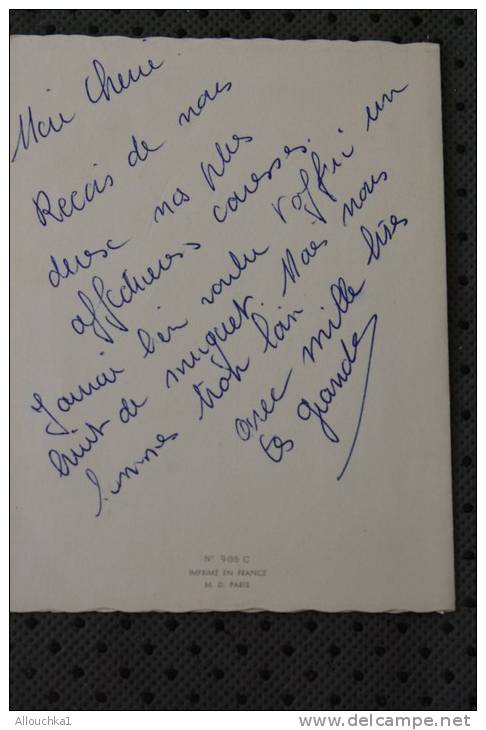 Mon Cherie
Recois de nous
deux nos plus
affectueuses caresses.
J'aurai bien voulu t'offrir un
brint de muguet. Mais nous
sommes trop loin
avec mille bises
tes grands
N° 985 C
IMPRIMÉ EN FRANCE
M. D. PARIS
Allouchka1
delcampe.net